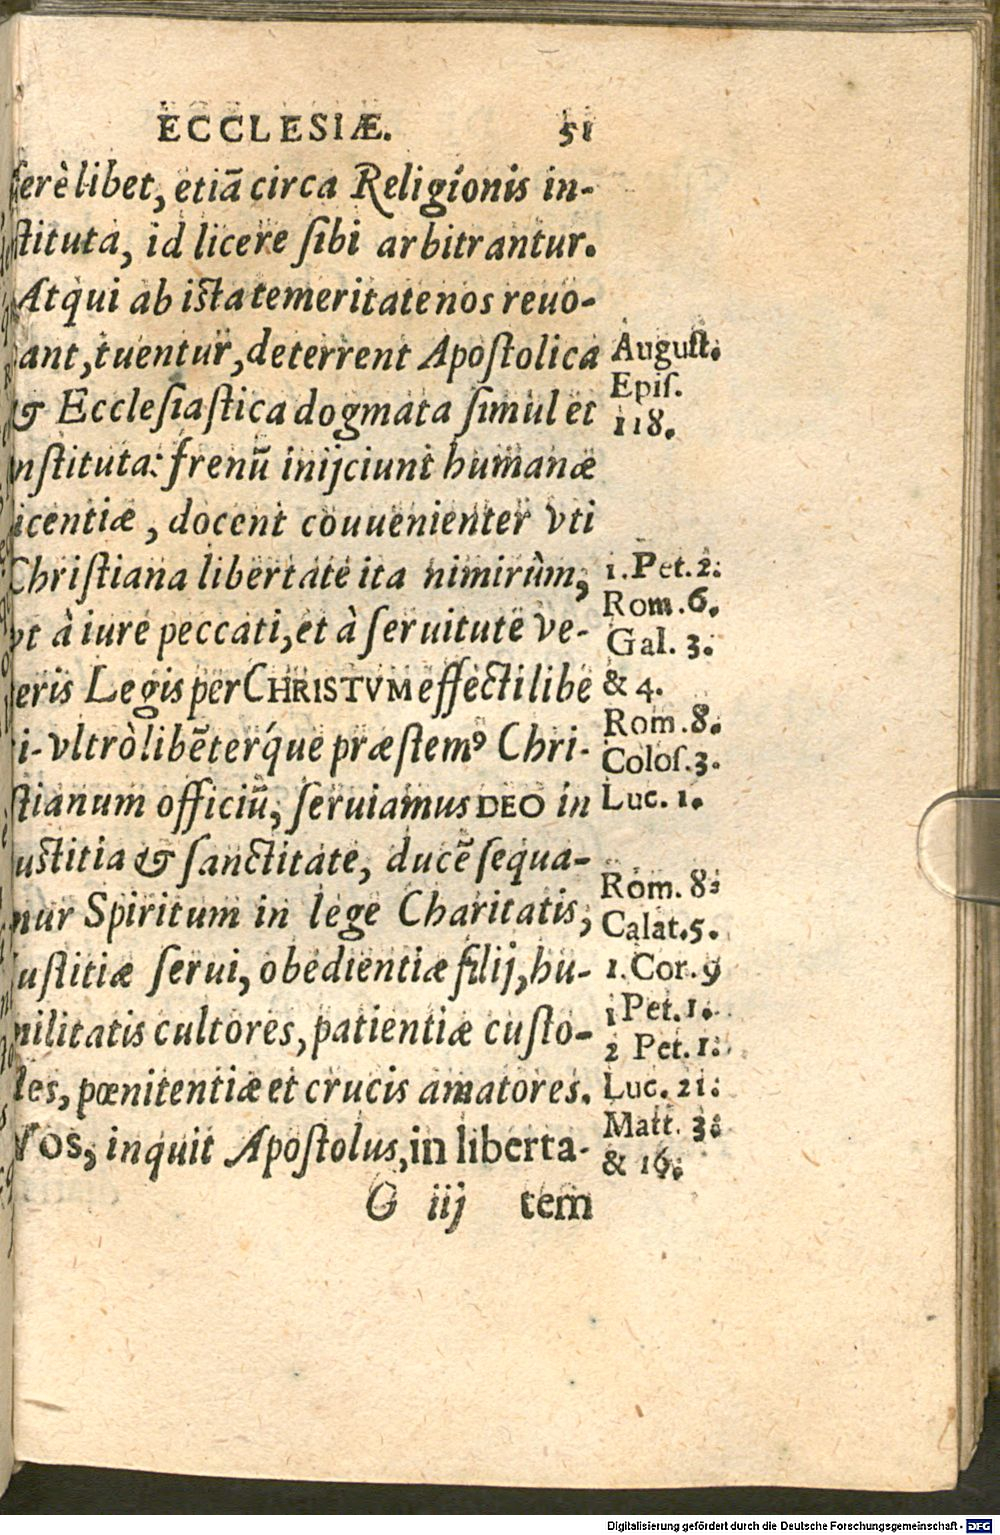 ECCLESIÆ. 51
ſerè libet, etiā circa Religionis in-
ſtituta, id licere ſibi arbitrantur.
Atqui ab iſta temeritate nos reuo-
cant, tuentur, deterrent Apoſtolica
& Eccleſiaſtica dogmata ſimul et
inſtituta: frenū inijciunt humanæ
licentiæ, docent couuenienter vti
Chriſtiana libertate ita nimirùm,
vt à iure peccati, et à ſeruitute ve-
teris Legis per CHRISTVM effecti libe
ri- vltrò libēterq́ue præſtemꝰ Chri-
ſtianum officiū, ſeruiamus DEO in
iuſtitia & ſanctitate, ducē ſequa-
mur Spiritum in lege Charitatis,
iuſtitiæ ſerui, obedientiæ filij, hu-
militatis cultores, patientiæ cuſto-
des, pœnitentiæ et crucis amatores.
Vos, inquit Apoſtolus, in liberta-
G iij tem
Auguſt.
Epiſ.
118.
1. Pet. 2.
Rom. 6.
Gal. 3.
& 4.
Rom. 8.
Coloſ. 3.
Luc. 1.
Rom. 8.
Calat. 5.
1. Cor. 9
1 Pet. 1.
2 Pet. 1.
Luc. 21.
Matt. 3.
& 16.
Digitalisierung gefördert durch die Deutsche Forschungsgemeinschaft - DFG